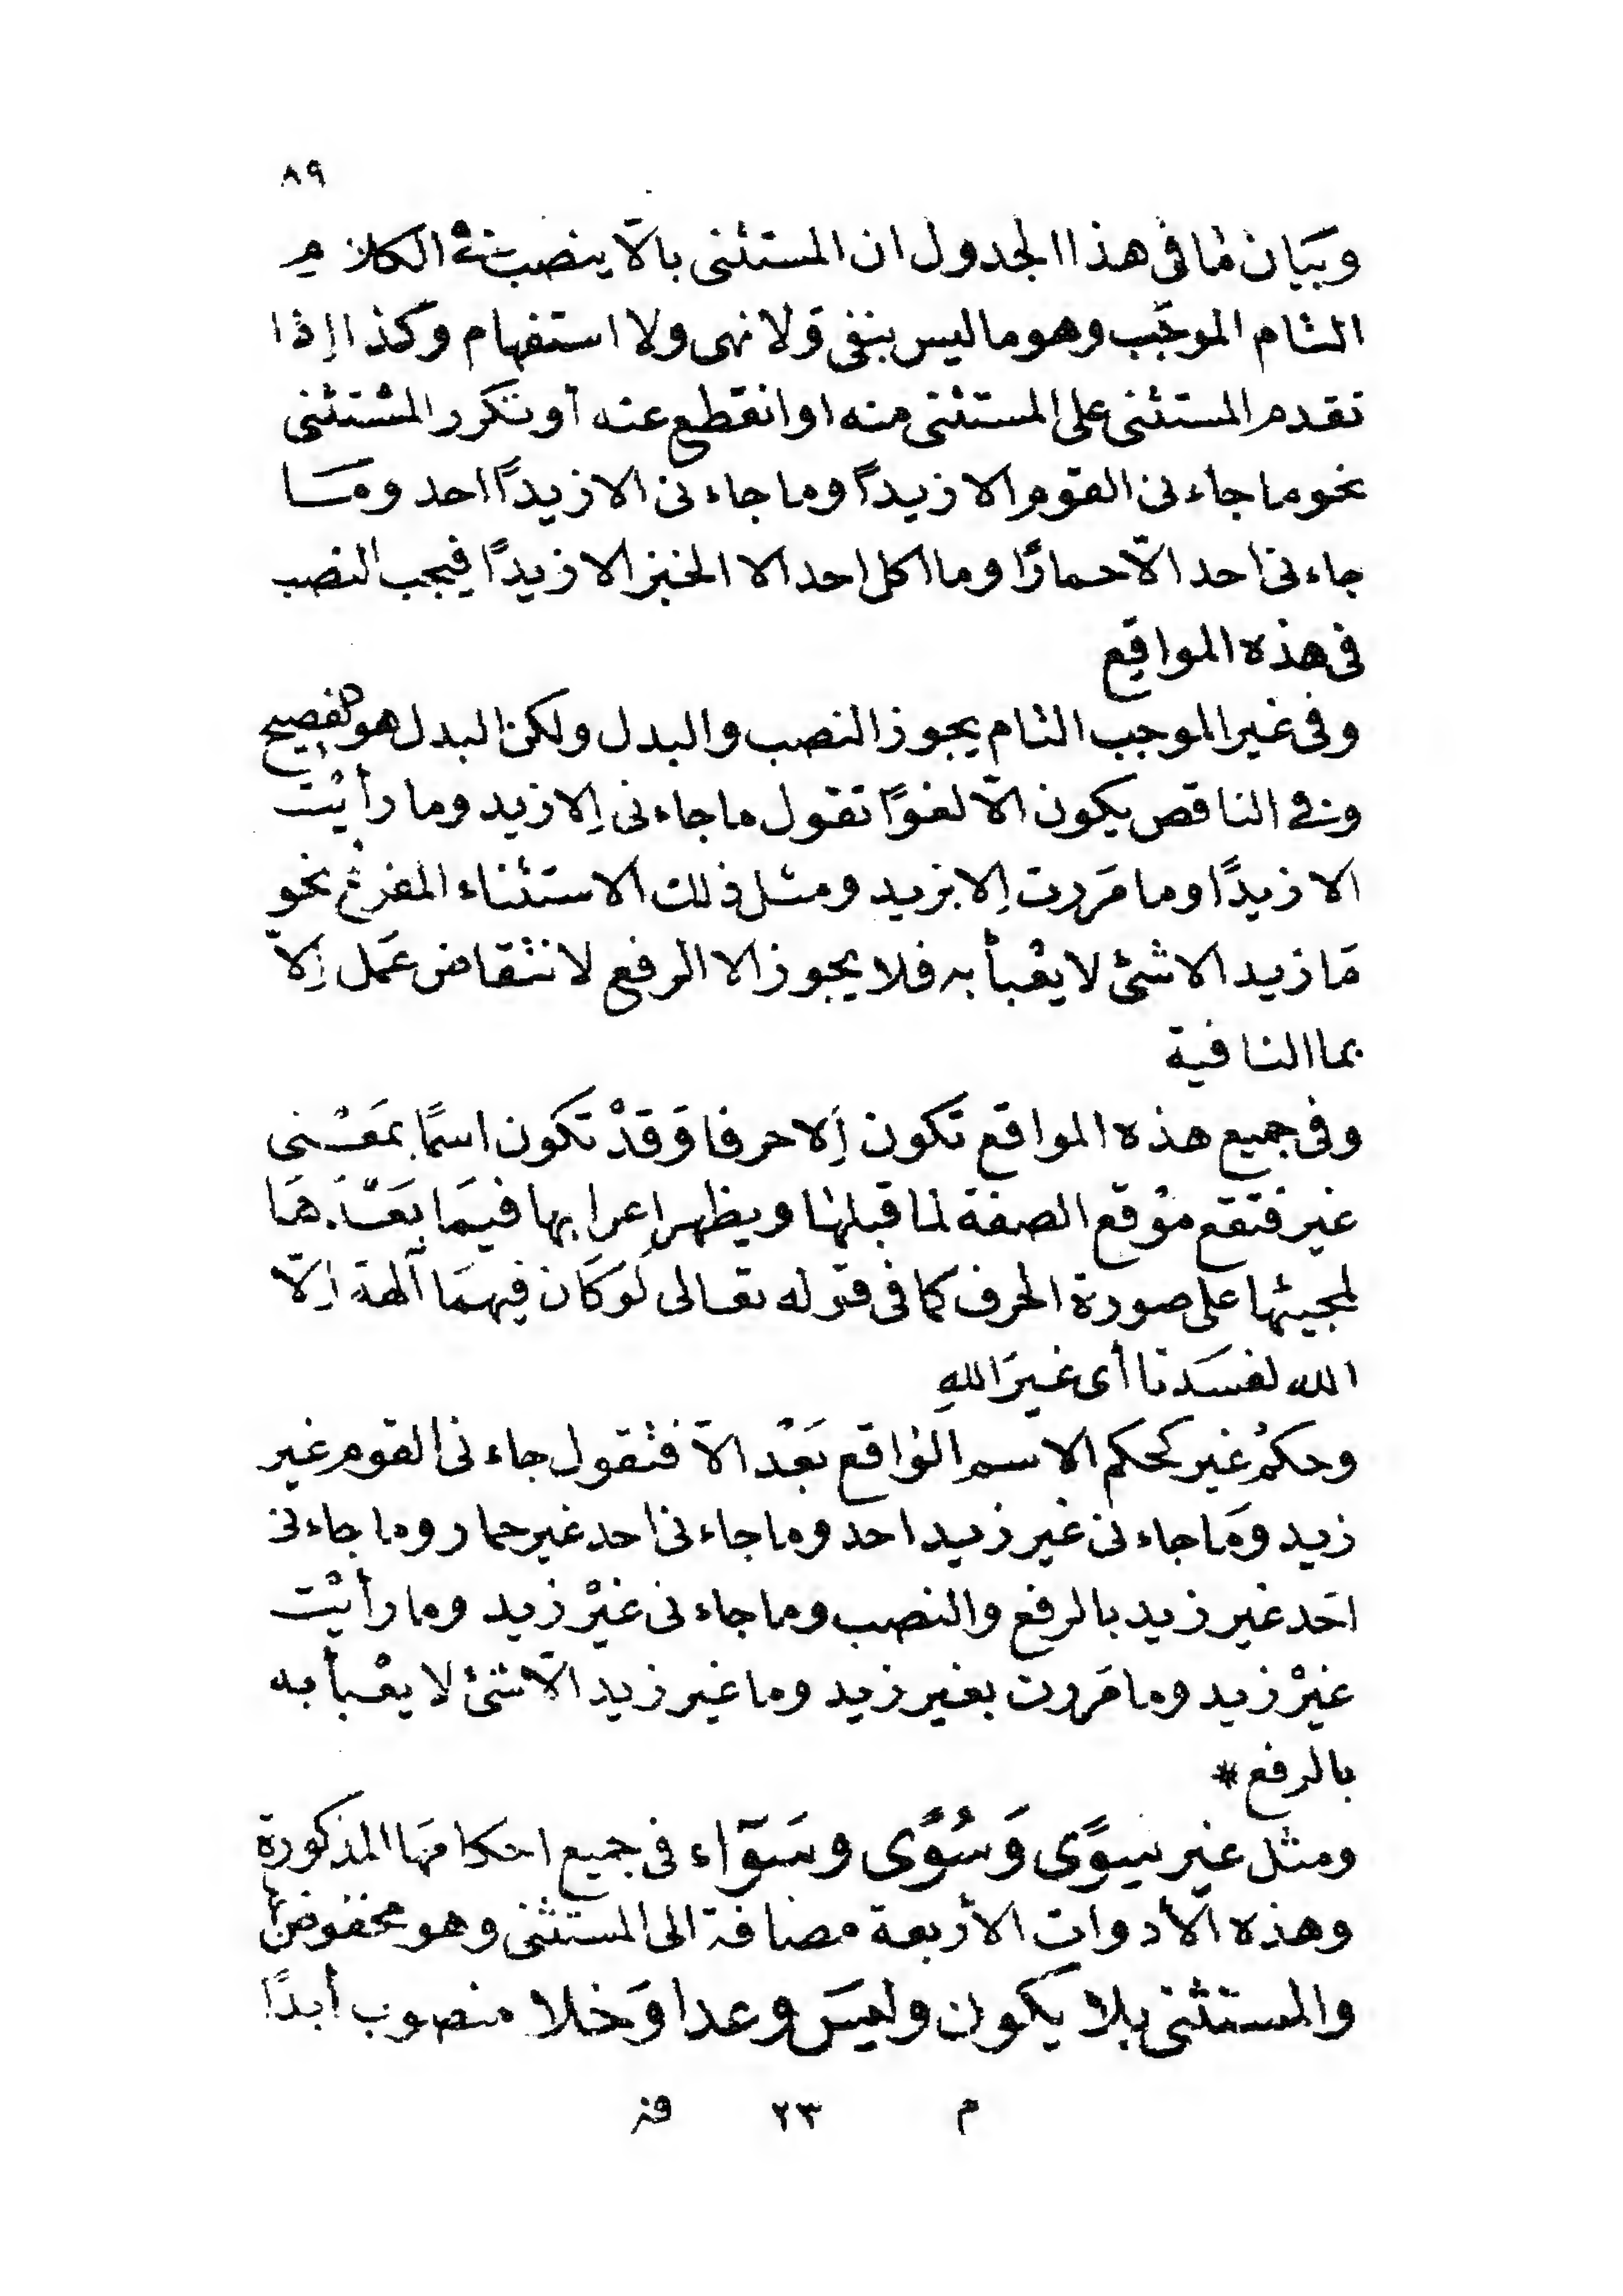 ٨٩
وبَيَان مٰا فى هذا الجدول ان المستثنى بالاّ ينصب فى الكلام
التام الموجَب وهو ما ليس بنفى وَلا نهى ولا استفهام وكذا إذا
تقدم المستثنى على المستثنى منه او انقطع عنه أو تكرر المستثنى
نحو ما جاءنى القوم الا زيداً وما جاءنى الا زيداً احد ومَا
جاءنى احد الاّ حمارًا وما اكل احد الا الخبز الا زيدًا فيجب النصب
فى هذه المواقِع
وفى غير الموجب التام يجوز النصب والبدل ولكن البدل هو الفصيح
وفى الناقص يكون الاّ لغوًا تقول ما جاءنى إلا زيد وما رأيْت
الا زيدًا وما مَررت إلا بزيد ومثل ذلك الاستثناء المفرغ نحو
مَا زيد الا شئ لا يعْبأ به فلا يجوز الا الرفع لانتقاض عَمل إلاّ
بما النافية
وفى جميع هذه المواقع تكون إلا حرفا وَقدْ تكون اسمًا بمَعْنى
غير فتقع موْقع الصفة لما قبلهٰا ويظهر إعرابها فيمَا بَعْدَهَا
لمجيئها على صورة الحرف كما فى قوله تعالى لَوكَان فِيهمَا آلهة إلاّ
الله لفسَدتا أى غيرَ اللهِ
وحكمُ غير كحكم الاسم الوٰاقع بَعْد الاّ فتقول جاءنى القوم غير
زيد ومَا جاءنى غير زيد احد وما جاءنى احد غير حمار وما جاءنى
احَد غير زيد بالرفع والنصب وما جاءنى غيْر زيد وما رأيْت
غيْر زيد وما مَررت بغير زيد وما غير زيد الاّ شئ لا يعْبأ به
بالرفع *
ومثل غير سِوًى وَسُوًى وسَوَآء فى جميع احكامهَا المذكورة
وهذه الأدوات الأربعة مضافة الى المستثنى وهو مخفوض
والمستثنى بلا يكون وليسَ وعدا وَخلا منصوب أبدًا
م ٢٣ فز